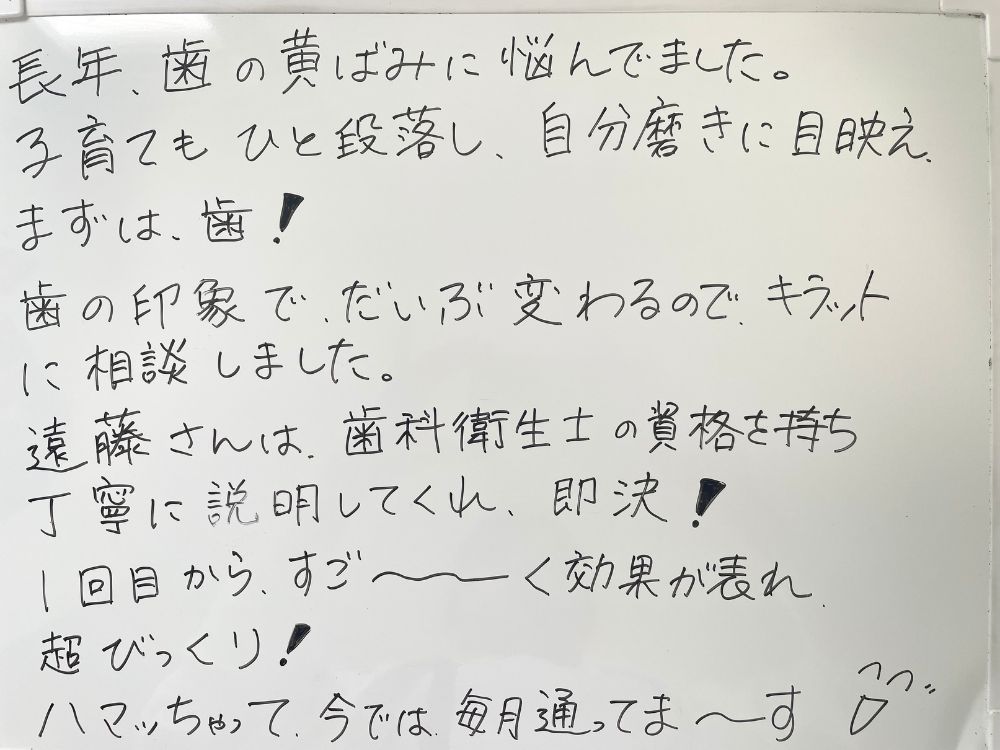 長年、歯の黄ばみに悩んでました。
子育てもひと段落し、自分磨きに目映え、
まずは、歯!
歯の印象で、だいぶ変わるので、キラット
に相談しました。
遠藤さんは、歯科衛生士の資格を持ち
丁寧に説明してくれ、即決!
1回目から、すご〜〜く効果が表れ、
超びっくり!
ハマッちゃって、今では、毎月通ってま〜す